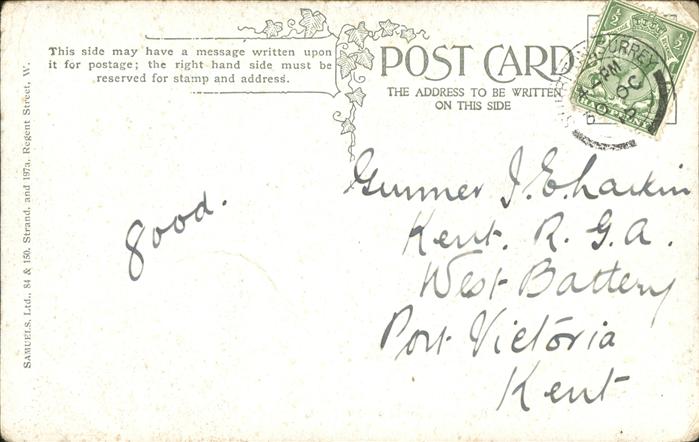 This side may have a message written upon
it for postage; the right hand side must be
reserved for stamp and address.
POST CARD
THE ADDRESS TO BE WRITTEN
ON THIS SIDE
SURREY
PM
OC
good.
Gunner J. E.
Kent. R. G. A.
West Battery
Port Victoria
Kent
SAMUELS, Ltd., 84 & 150, Strand, and 197a, Regent Street, W.